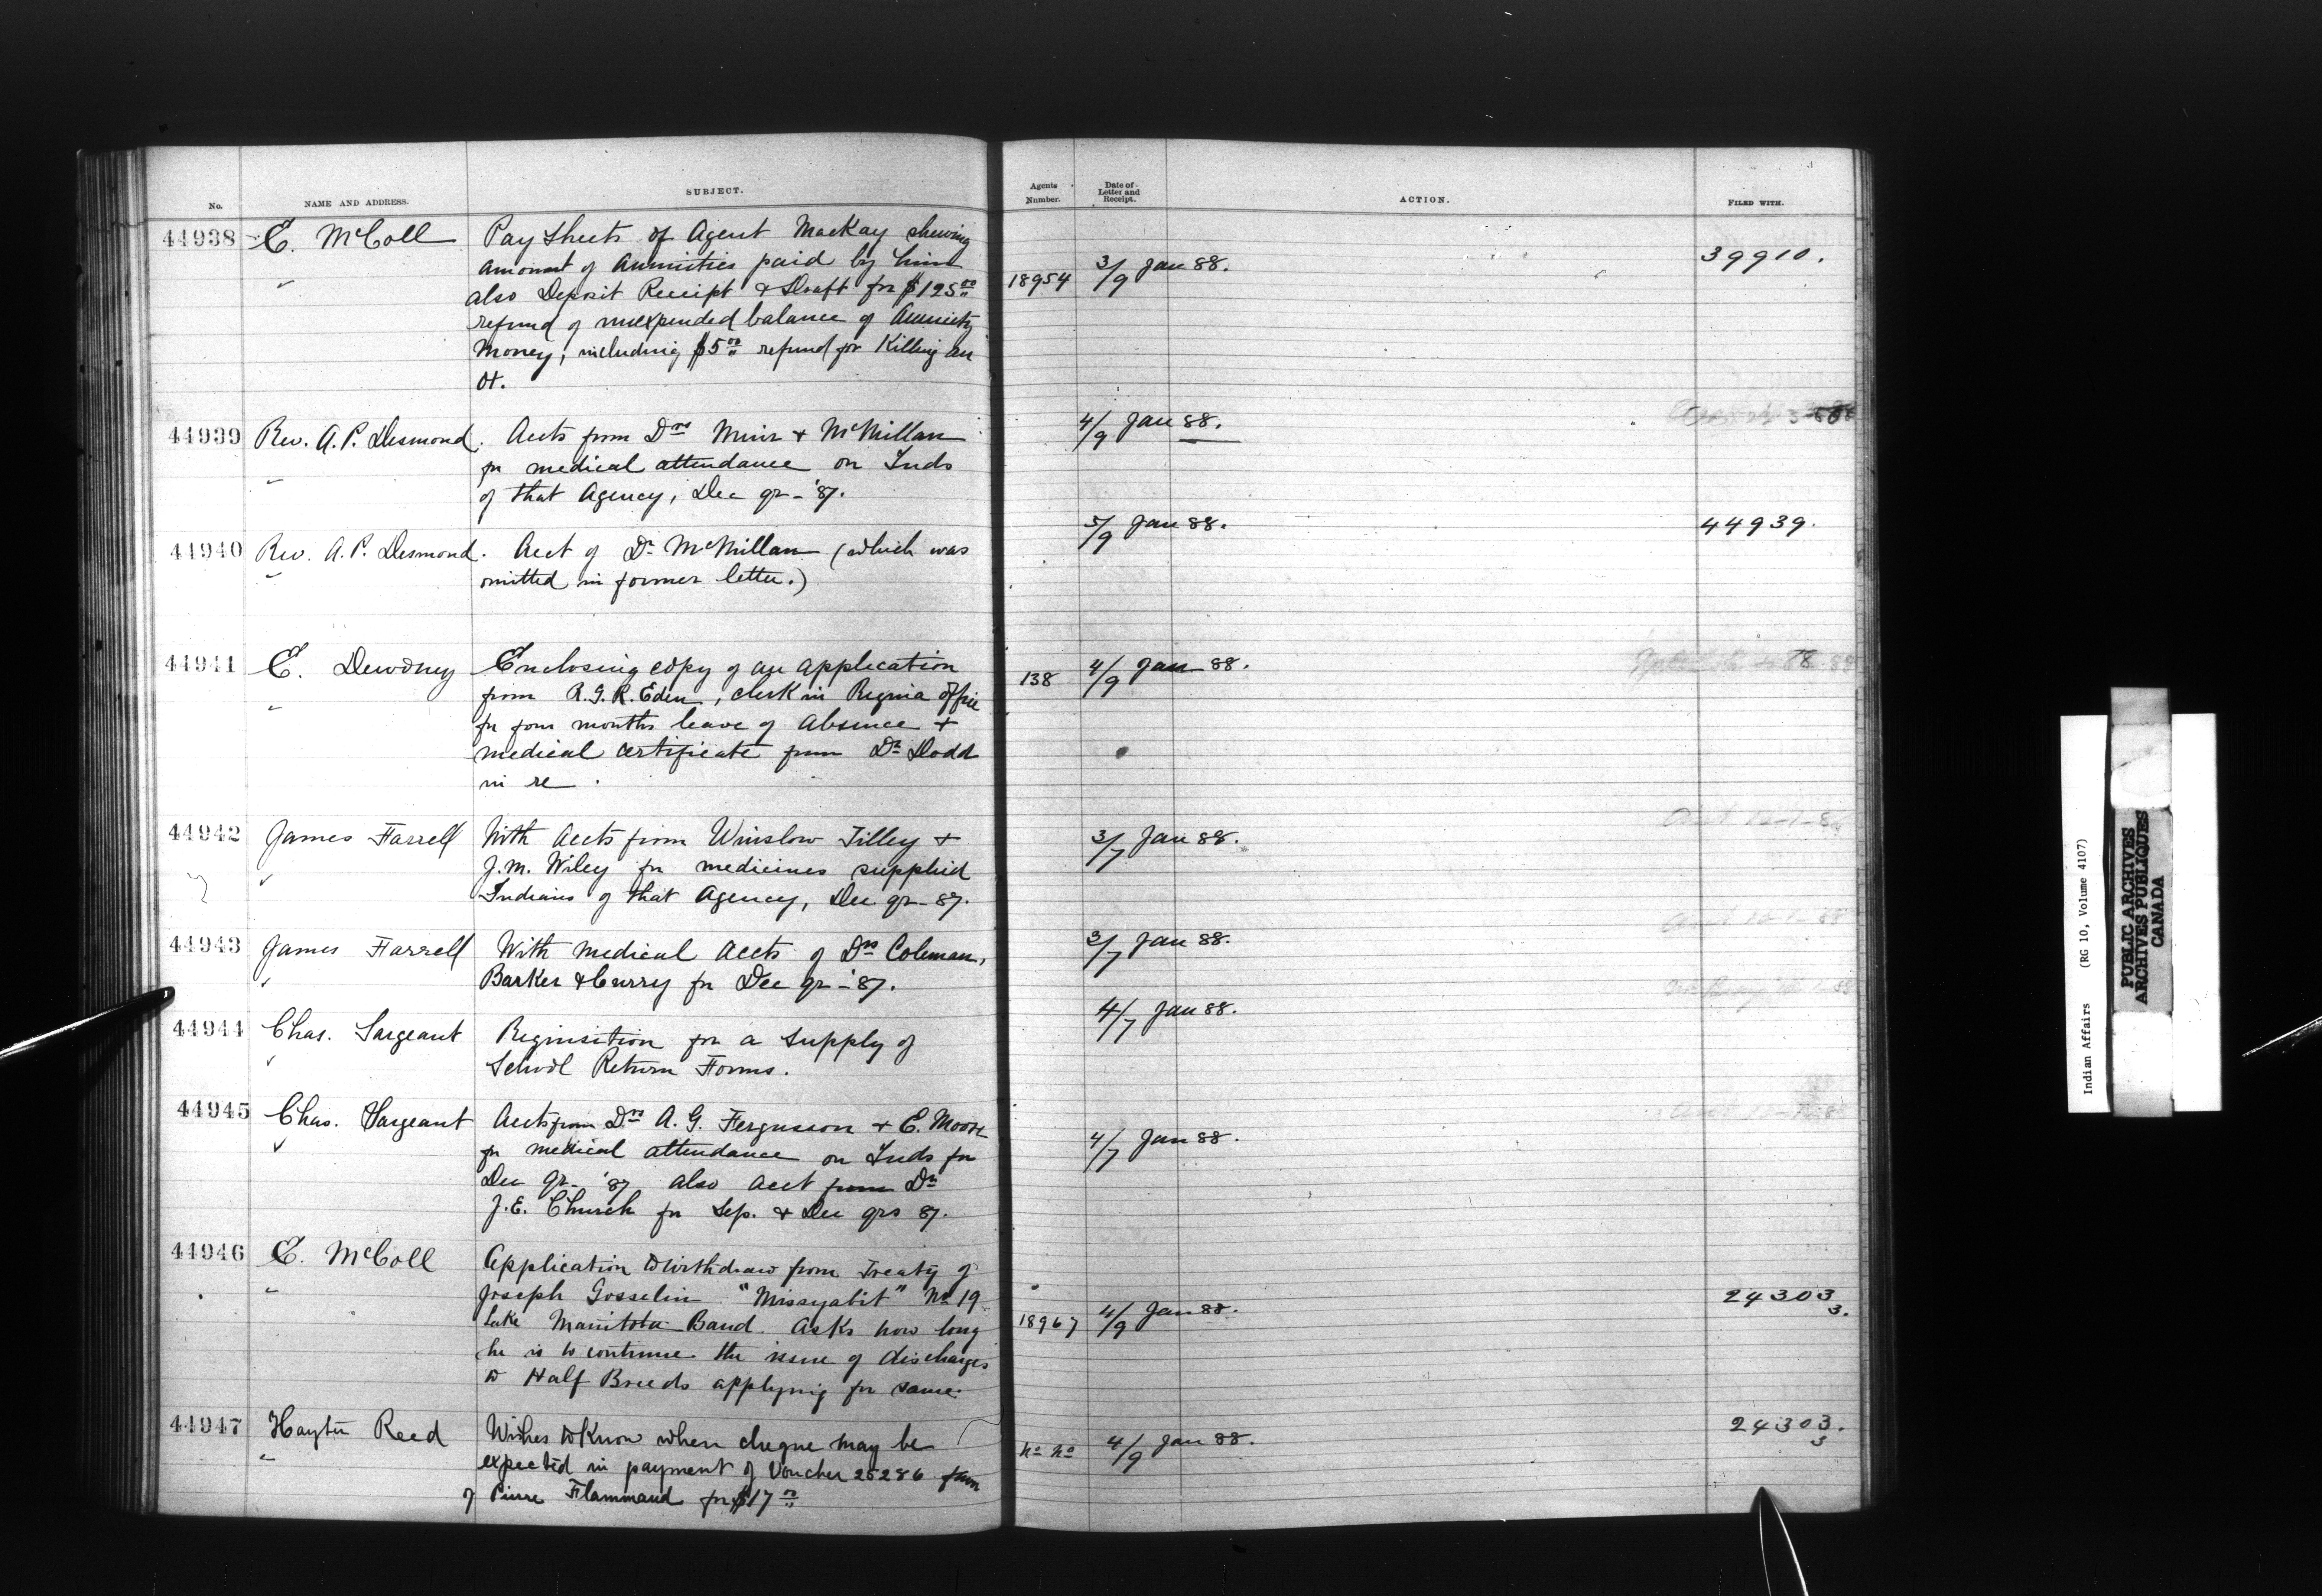 No. NAME AND ADDRESS. SUBJECT. Agents Number. Date of Letter and Receipt. ACTION. FILED WITH.
44938 E. McColl Pay Sheets of Agent MacKay shewing
amount of Annuities paid by him 18954 3/9 Jan 88. 39910.
also Deposit Receipt & Draft for $125 00
refund of unexpended balance of Annuity
Money, including $5 00 refund for Killing an
Ox.
44939 Rev. A. P. Desmond. Accts from Drs Muir & McMillan 4/9 Jan 88.
for medical attendance on Inds
of that Agency, Dec qr - '87.
44940 Rev. A. P. Desmond. Acct of Dr McMillan (which was 5/9 Jan 88. 44939.
omitted in former letter.)
44941 E. Dewdney Enclosing copy of an application 138 4/9 Jan 88.
from R. G. R. Eden, clerk in Regina Office
for four months leave of absence &
medical certificate from Dr Dodd
in re
44942 James Farrell With Accts from Winslow Tilley & 3/7 Jan 88.
J. M. Wiley for medicines supplied
Indians of that Agency, Dec qr - 87.
44943 James Farrell With Medical Accts of Drs Coleman, 3/7 Jan 88.
Barker & Curry for Dec qr - '87.
44944 Chas. Sargeant Requisition for a supply of 4/7 Jan 88.
School Return Forms.
44945 Chas. Sargeant Accts from Drs A. G. Fergusson & E. Moore
for medical attendance on Inds for 4/7 Jan 88.
Dec qr - '87 also acct from Dr
J. E. Church for Sep. & Dec qrs 87.
44946 E. McColl Application to withdraw from Treaty of
Joseph Gosselin "Missyabit" No 19 24303 3.
Lake Manitoba Band. Asks how long 18967 4/9 Jan 88.
he is to continue the issue of discharges
to Half Breeds applying for same.
44947 Hayter Reed Wishes to know when cheque may be No No 4/9 Jan 88. 24303. 3
expected in payment of Voucher 25286 favor
of Pierre Flammand for $17 00
Indian Affairs (RG 10, Volume 4107)
PUBLIC ARCHIVES
ARCHIVES PUBLIQUES
CANADA